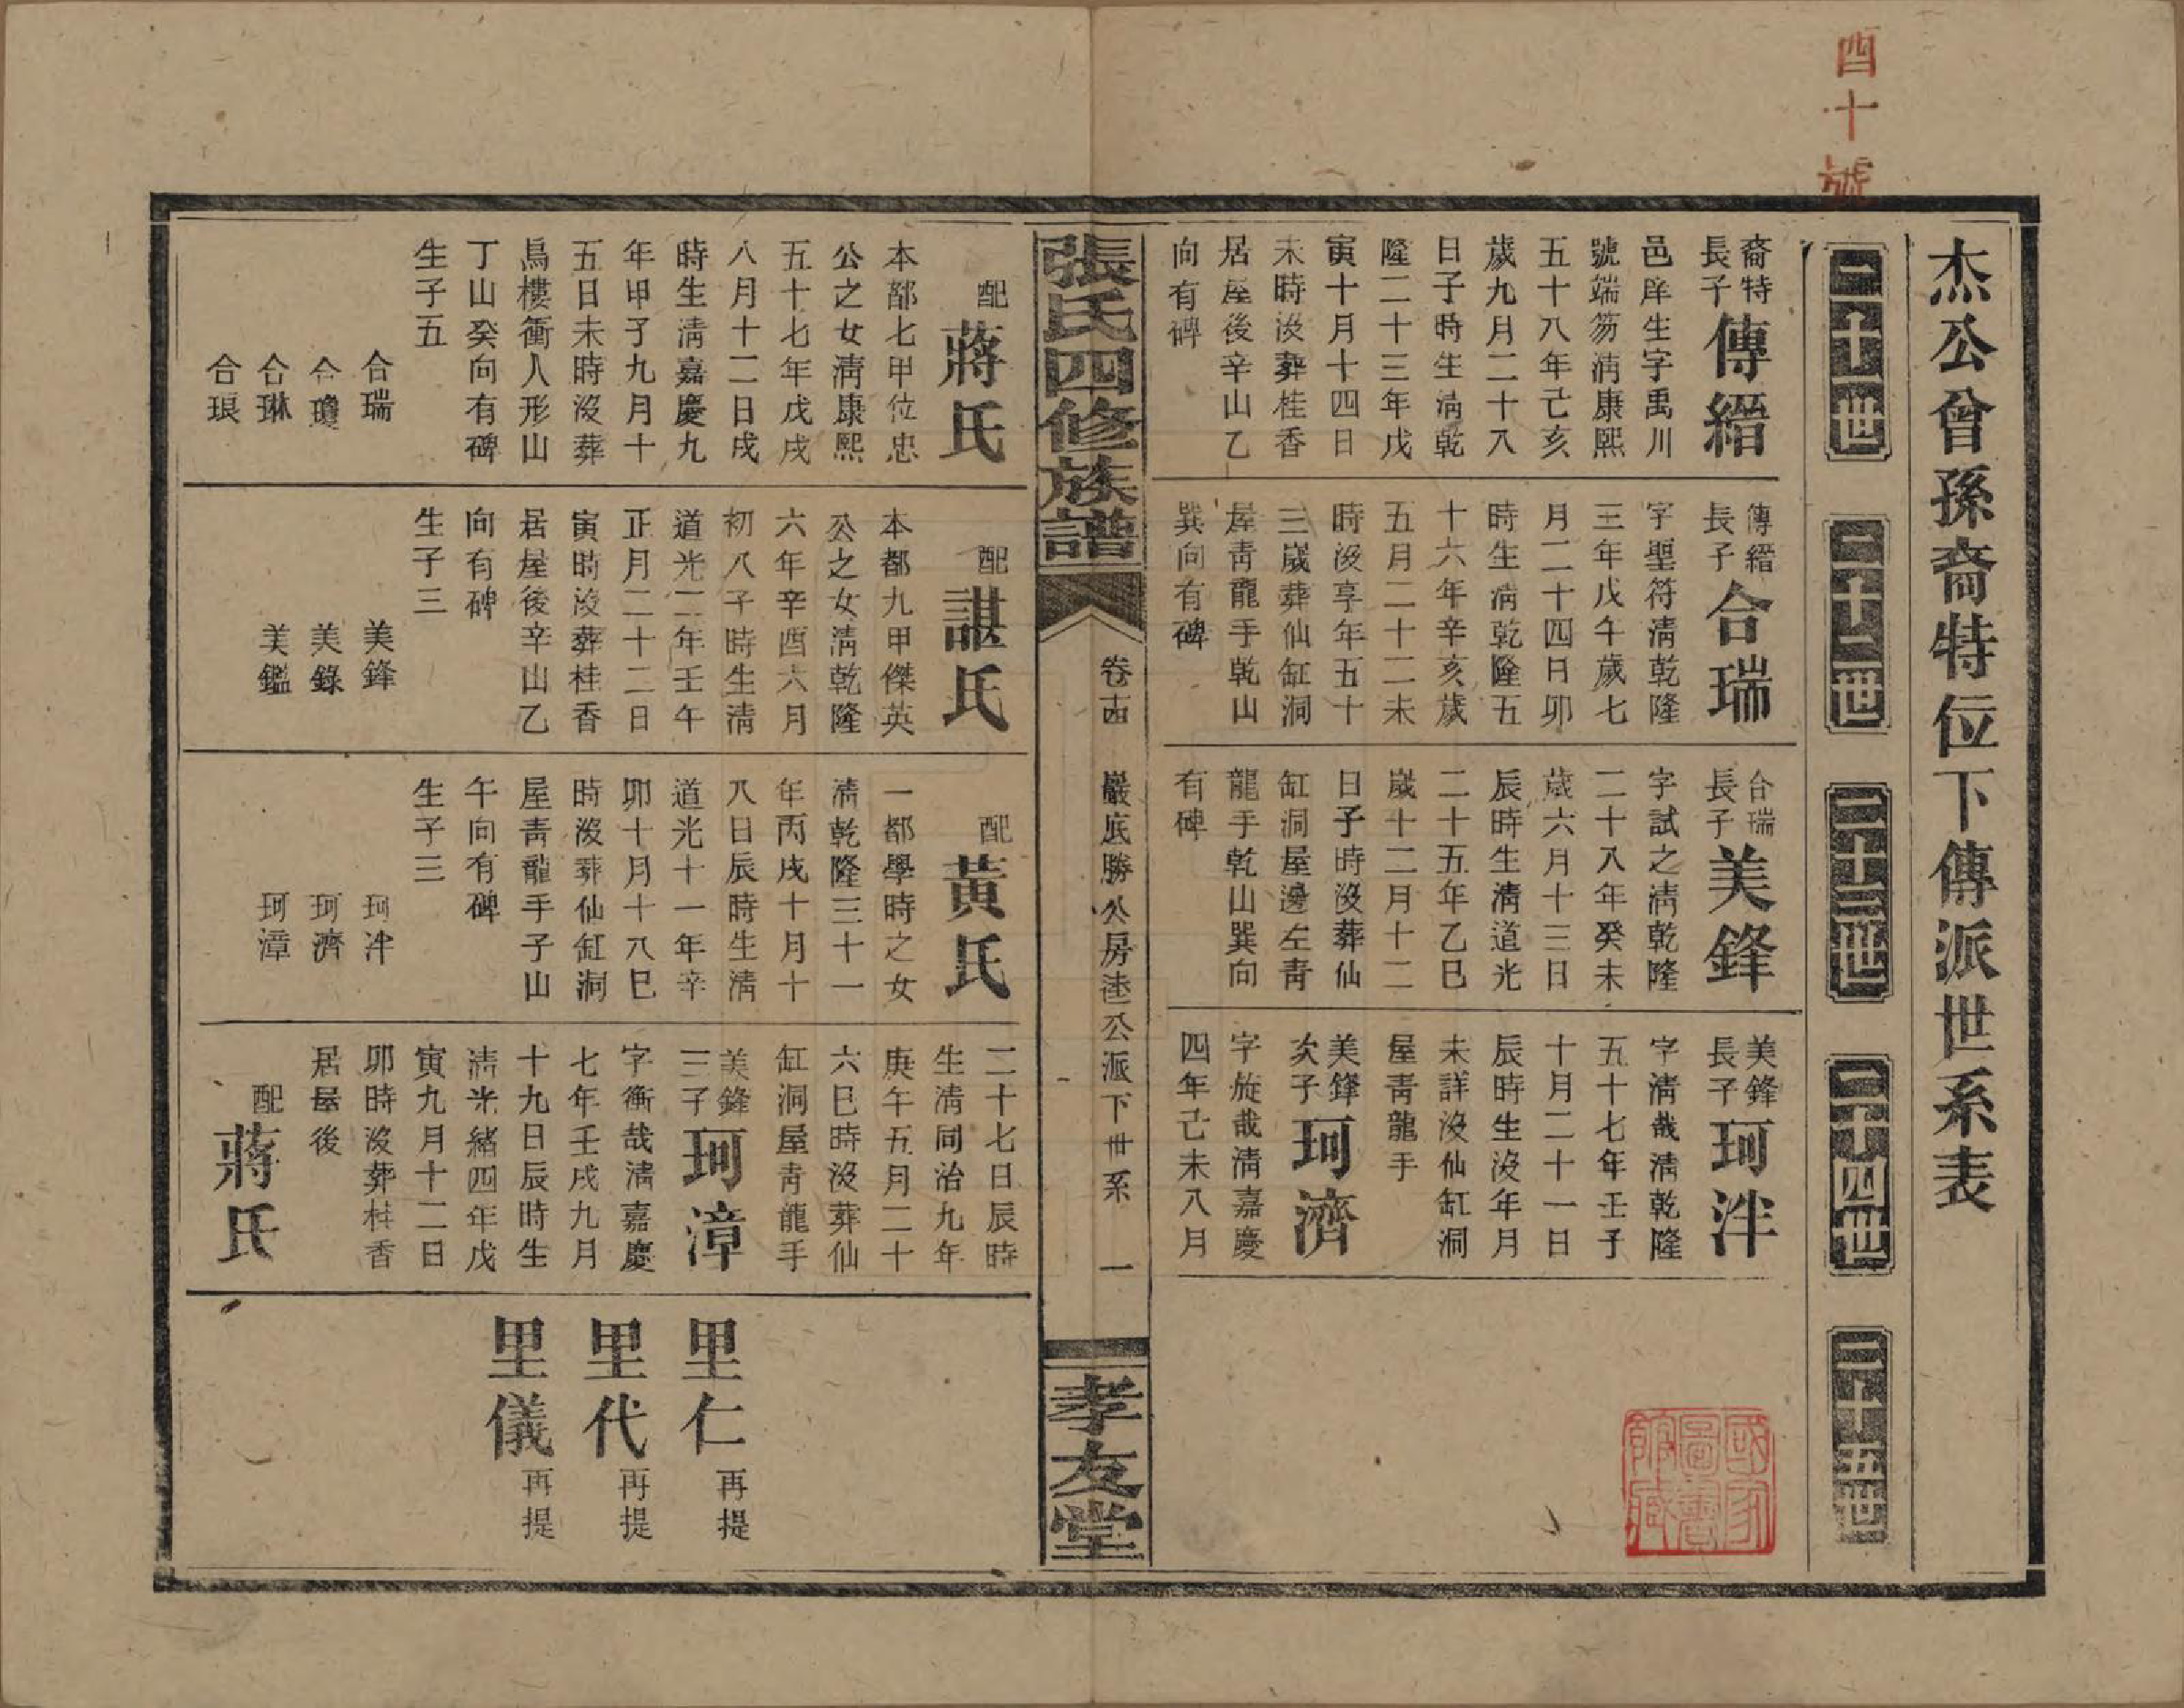 四十號
杰公曾孫裔特位下傳派世系表
二十一世
二十二世
二十三世
二十四世
二十五世
裔特
長子
傳縉
邑庠生字禹川
號端笏清康熙
五十八年己亥
歲九月二十八
日子時生清乾
隆二十三年戊
寅十月十四日
未時沒葬桂香
居屋後辛山乙
向有碑
傳縉
長子
合瑞
字聖符清乾隆
三年戊午歲七
月二十四日卯
時生清乾隆五
十六年辛亥歲
五月二十二未
時沒享年五十
三歲葬仙缸洞
屋靑龍手乾山
巽向有碑
合瑞
長子
美鋒
字試之清乾隆
二十八年癸未
歲六月十三日
辰時生清道光
二十五年乙巳
歲十二月十二
日子時沒葬仙
缸洞屋邊左靑
龍手乾山巽向
有碑
美鋒
長子
珂泮
字清哉清乾隆
五十七年壬子
十月二十一日
辰時生沒年月
未詳沒仙缸洞
屋靑龍手
美鋒
次子
珂濟
字旋哉清嘉慶
四年己未八月
張氏四修族譜
卷十四
巖底勝公房逵公派下世系
一
孝友堂
配
蔣氏
本都七甲位忠
公之女清康熙
五十七年戊戌
八月十二日戌
時生清嘉慶九
年甲子九月十
五日未時沒葬
鳥樓衝人形山
丁山癸向有碑
生子五
合瑞
合瓊
合琳
合琅
配
諶氏
本都九甲傑英
公之女清乾隆
六年辛酉六月
初八子時生清
道光二年壬午
正月二十二日
寅時沒葬桂香
居屋後辛山乙
向有碑
生子三
美鋒
美錄
美鑑
配
黃氏
一都學時之女
清乾隆三十一
年丙戌十月十
八日辰時生清
道光十一年辛
卯十月十八巳
時沒葬仙缸洞
屋靑龍手子山
午向有碑
生子三
珂泮
珂濟
珂漳
二十七日辰時
生清同治九年
庚午五月二十
六巳時沒葬仙
缸洞屋靑龍手
美鋒
三子
珂漳
字衡哉清嘉慶
七年壬戌九月
十九日辰時生
清光緒四年戊
寅九月十二日
卯時沒葬桂香
居屋後
配
蔣氏
里仁再提
里代再提
里儀再提
國家圖書館藏